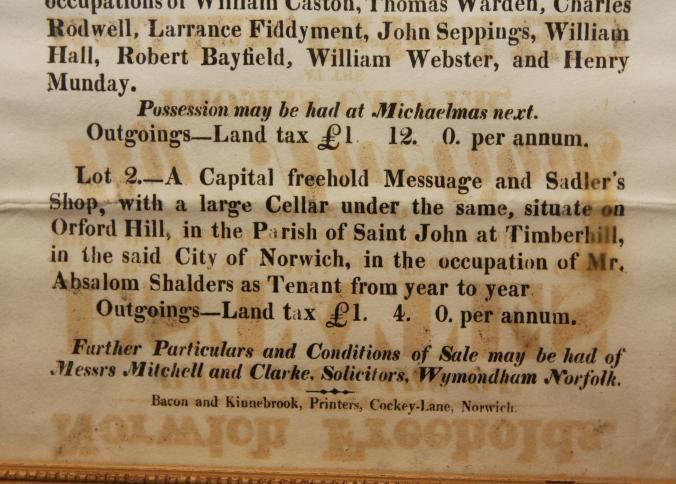 occupations of William Caston, Thomas Warden, Charles
Rodwell, Larrance Fiddyment, John Seppings, William
Hall, Robert Bayfield, William Webster, and Henry
Munday.
Possession may be had at Michaelmas next.
Outgoings—Land tax £1. 12. 0. per annum.
Lot 2.—A Capital freehold Messuage and Sadler's
Shop, with a large Cellar under the same, situate on
Orford Hill, in the Parish of Saint John at Timberhill,
in the said City of Norwich, in the occupation of Mr.
Absalom Shalders as Tenant from year to year
Outgoings—Land tax £1. 4. 0. per annum.
Further Particulars and Conditions of Sale may be had of
Messrs Mitchell and Clarke, Solicitors, Wymondham Norfolk.
Bacon and Kinnebrook, Printers, Cockey-Lane, Norwich.
Norwich Freeholds